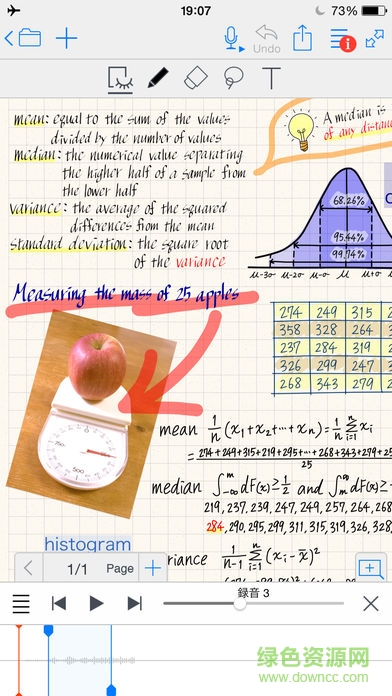 19:07
73%
Undo
mean: equal to the sum of the values
divided by the number of values
median: the numerical value separating
the higher half of a sample from
the lower half
variance: the average of the squared
differences from the mean
standard deviation: the square root
of the variance
A median is
of any distan
68.26%
95.44%
99.74%
μ-3σ μ-2σ μ-σ μ μ+σ
Measuring the mass of 25 apples
274 249 315
358 328 264
237 284 319
326 299 247
268 343 279
mean 1/n (x₁+x₂+…+xₙ)=1/n Σ xᵢ
i=1 n
=274+249+315+219+295+…+268+343+279+25
25
median ∫-∞ m dF(x)≥1/2 and ∫m ∞ dF(x)≥
219,237,239,247,249,257,264,268
284,290,295,299,311,315,319,326,328,
histogram
1/1 Page
riance 1/n-1 Σ (xᵢ-x̄)²
i=1 n
録音 3
绿色资源网
www.downcc.com